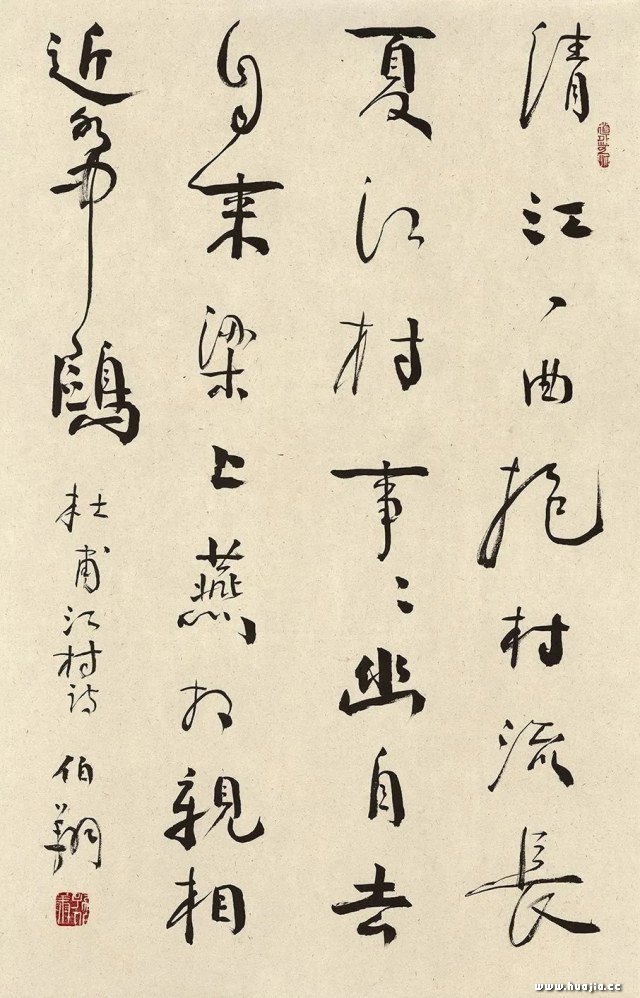 清江一曲抱村流長
夏江村事〻幽自去
自来梁上燕相親相
近水中鷗 杜甫江村詩 伯翔
www.huajia.cc